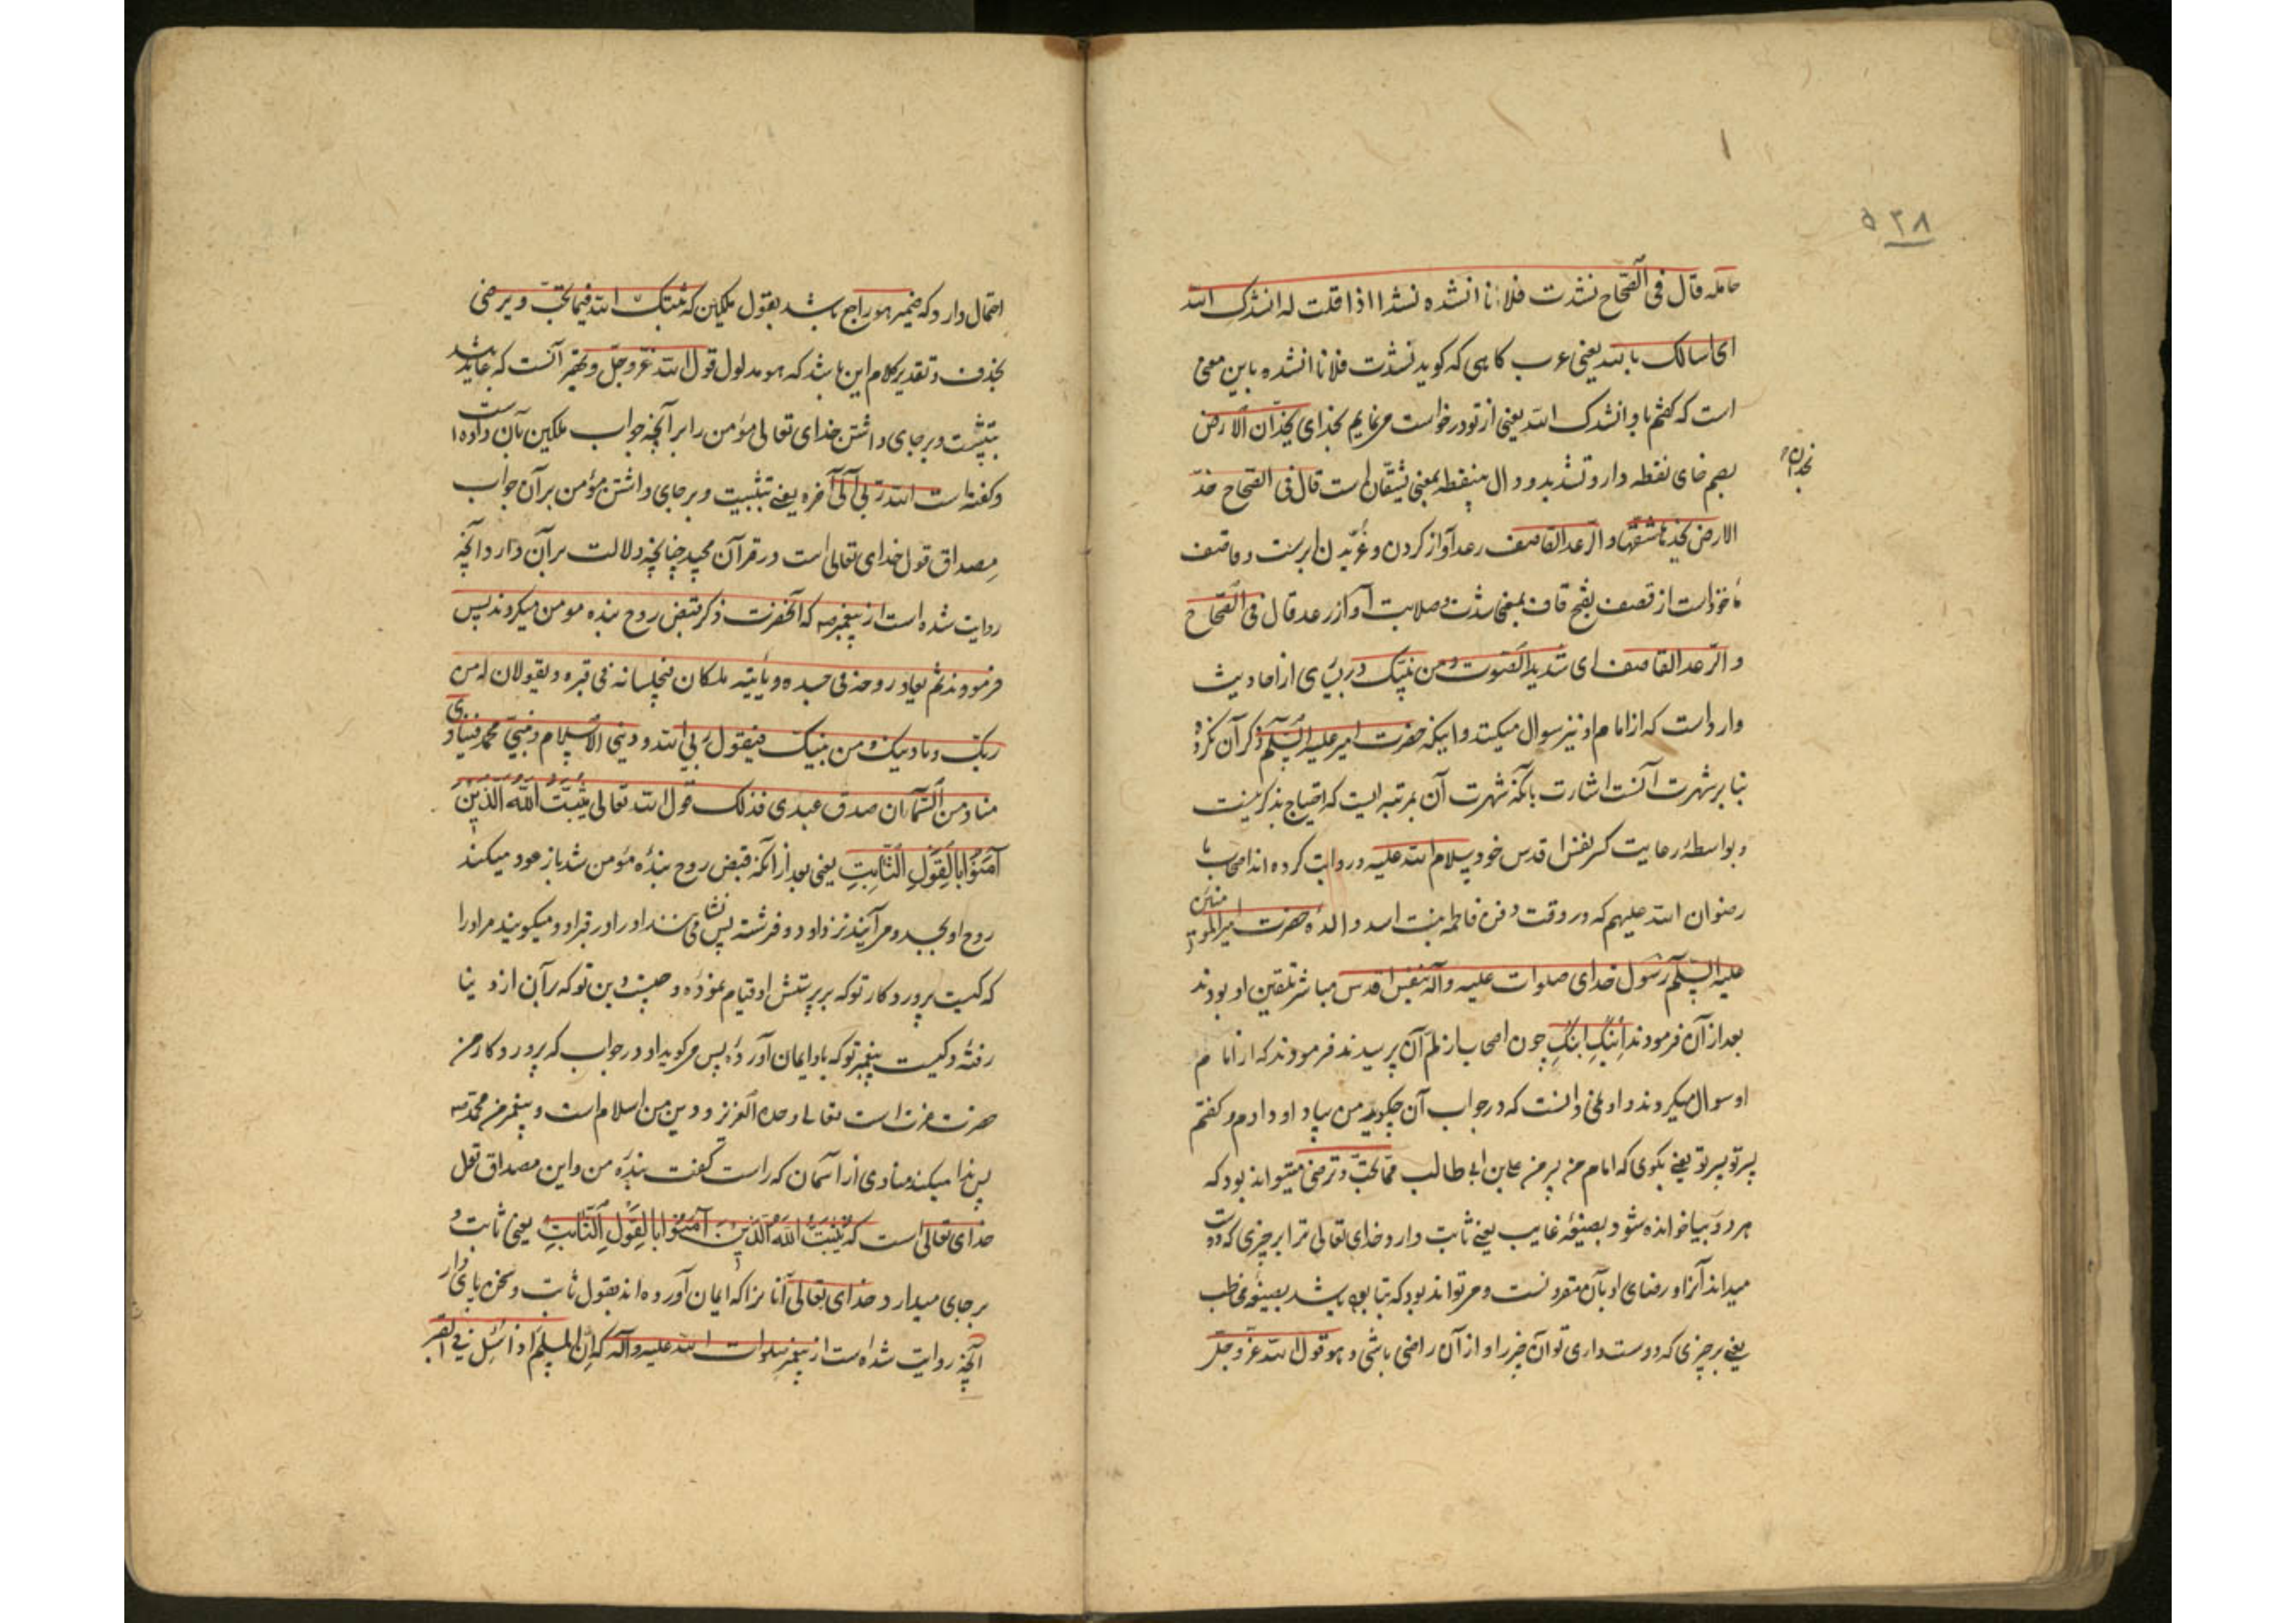 ۵۳۸
حامله قال فی الصحاح نشدت فلانا انشده نشدا اذا قلت له انشدک الله
ای سالک بالله یعنی عرب کاهی که کوید نشدت فلانا انشده باین معنی
است که کفتم باو انشدک الله یعنی از تو درخواست می نمایم بخدای یخدان الارض
بضم خای نقطه دار و تشدید دال بی نقطه بمعنی یشقان است قال فی الصحاح خد
یخدان
الارض یخدها شقها و الرعد القاصف رعد آواز کردن و غریدن ابر است و قاصف
ماخوذ است از قصف بفتح قاف بمعنی شدت و صلابت آواز رعد قال فی الصحاح
و الرعد القاصف ای شدید الصوت و من نبیک در بسیاری از احادیث
وارد است که از امام او نیز سوال میکنند و اینکه حضرت امیر علیه السلم ذکر آن نکرده
بنا بر شهرت آنست اشارت بآنکه شهرت آن بمرتبه ایست که احتیاج بذکر نیست
و بواسطهٔ رعایت کسر نفس اقدس خود سلام الله علیه و روایت کرده اند اصحاب ما
رضوان الله علیهم که در وقت دفن فاطمه بنت اسد والدهٔ حضرت امیر المومنین
علیه السلم رسول خدای صلوات علیه وآله بنفس اقدس مباشر تلقین او بودند
بعد از آن فرمودند ابنک ابنک چون اصحاب از لم آن پرسیدند فرمودند که از امام
او سوال میکردند و او نمی دانست که در جواب آن چکوید من بیاد او دادم و کفتم
پسر تو پسر تو یعنی بکوی که امام من پسر من علی بن ابی طالب مما تحب و ترضی میتواند بود که
هر دو بیا خوانده شود بصیغهٔ غایب یعنی ثابت دارد خدای تعالی ترا بر چیزی که دوست
میداند آنرا و رضای او بآن مقرونست و می تواند بود که بتا بوده باشد بصیغهٔ مخاطب
یعنی بر چیزی که دوست داری تو آن چیز را و از آن راضی باشی و هو قول الله عز و جل
احتمال دارد که ضمیر هو راجع باشد بقول ملکین که ثبتک الله فیما تحب و یرضی
بحذف و تقدیر کلام این باشد که هو مدلول قول الله عز و جل و بهتر آنست که عاید باشد
بتثبیت و بر جای داشتن خدای تعالی مؤمن را بر آنچه جواب ملکین بآن داده است
و کفته است الله ربی الی آخره یعنی تثبیت و بر جای داشتن مؤمن بر آن جواب
مصداق قول خدای تعالی است در قرآن مجید چنانچه دلالت بر آن دارد آنچه
روایت شده است از پیغمبر صه که آنحضرت ذکر قبض روح بنده مومن میکردند پس
فرمودند ثم یعاد روحه فی جسده و یأتیه ملکان فیجلسانه فی قبره و یقولان له من
ربک و ما دینک و من نبیک فیقول ربی الله و دینی الاسلام و نبیی محمد فینادی
مناد من السماء ان صدق عبدی فذلک قول الله تعالی یُثَبِّتُ اللّٰهُ الَّذِینَ
آمَنُوا بِالْقَوْلِ الثَّابِتِ یعنی بعد از آنکه قبض روح بندهٔ مؤمن شد باز عود میکند
روح او بجسد و می آیند نزد او دو فرشته پس می نشانند او را در قبر او و میکویند مر او را
که کیست پروردکار تو که بر پرستش او قیام نموده و چیست دین تو که بر آن از دینا
رفتهٔ و کیست پیغمبر تو که باو ایمان آوردهٔ پس میکوید او در جواب که پروردکار من
حضرت عزت است تعالی وحده العزیز و دین من اسلام است و پیغمبر من محمد صه
پس ندا میکند منادی از آسمان که راست کفت بندهٔ من و این مصداق قول
خدای تعالی است که یُثَبِّتُ اللّٰهُ الَّذِینَ آمَنُوا بِالْقَوْلِ الثَّابِتِ یعنی ثابت و
بر جای میدارد خدای تعالی آنانرا که ایمان آورده اند بقول ثابت و سخن پای دار
آنچه روایت شده است از پیغمبر صلوات الله علیه وآله که ان المسلم اذا سئل فی القبر